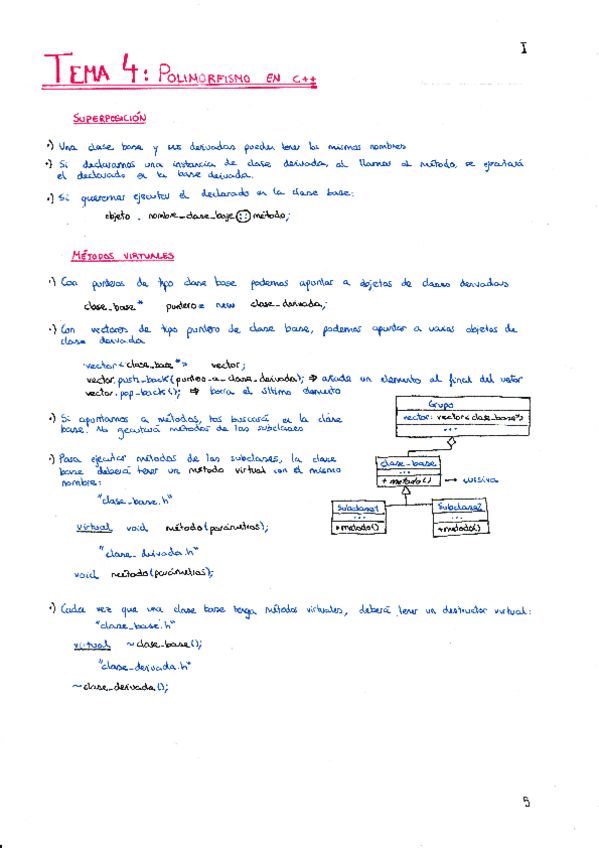 I
TEMA 4: POLIMORFISMO EN C++
SUPERPOSICIÓN
•) Una clase base y sus derivadas pueden tener los mismos nombres
•) Si declaramos una instancia de clase derivada, al llamar al método, se ejecutará
el declarado en la base derivada.
•) Si queremos ejecutar el declarado en la clase base:
objeto . nombre_clase_base::método;
MÉTODOS VIRTUALES
•) Con punteros de tipo clase base podemos apuntar a objetos de clases derivadas
clase_base* puntero = new clase_derivada;
•) Con vectores de tipo puntero de clase base, podemos apuntar a varios objetos de
clase derivada
vector<clase_base*> vector;
vector.push_back(puntero_a_clase_derivada); ⇒ añade un elemento al final del vector
vector.pop_back(); ⇒ borra el último elemento
•) Si apuntamos a métodos, los buscará en la clase
base. No ejecutará métodos de las subclases
•) Para ejecutar métodos de las subclases, la clase
base deberá tener un método virtual con el mismo
nombre:
"clase_base.h"
virtual void método(parámetros);
"clase_derivada.h"
void método(parámetros);
Grupo
vector: vector<clase_base*>
...
clase_base
...
+ metodo() → cursiva
Subclase1
...
+metodo()
Subclase2
...
+metodo()
•) Cada vez que una clase base tenga métodos virtuales, deberá tener un destructor virtual:
"clase_base.h"
virtual ~clase_base();
"clase_derivada.h"
~clase_derivada();
5